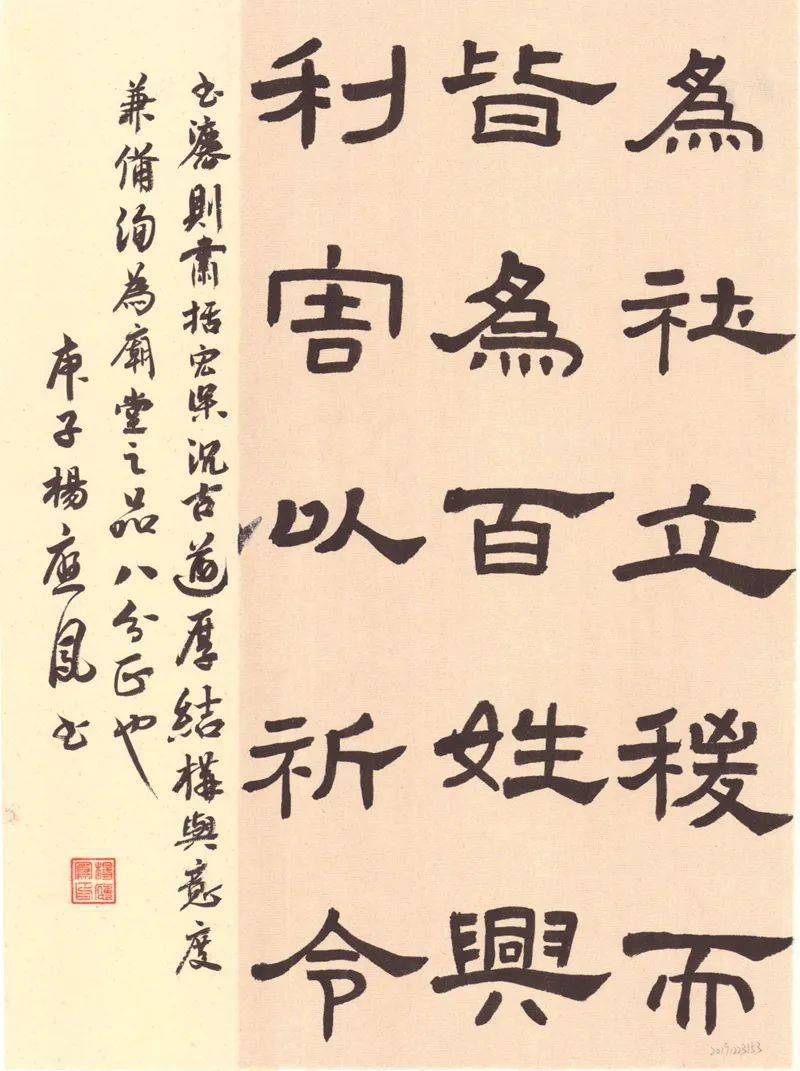 為社立稷而
皆為百姓興
利害以祈令
書灋則肅括宏深沉古遒厚結構與意度
兼備洵為廟堂之品八分正也
庚子楊應鳳書